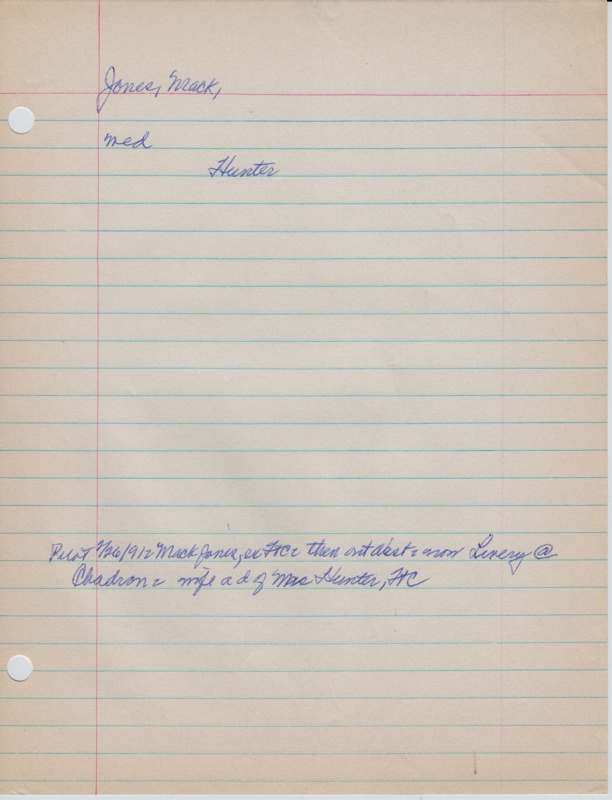 Jones, Mack,
med
Hunter
Pilot 9/26/912 Mack Jones, ex FtC = then out West = now Livery @
Chadron = wife a d of Mrs Hunter, FtC